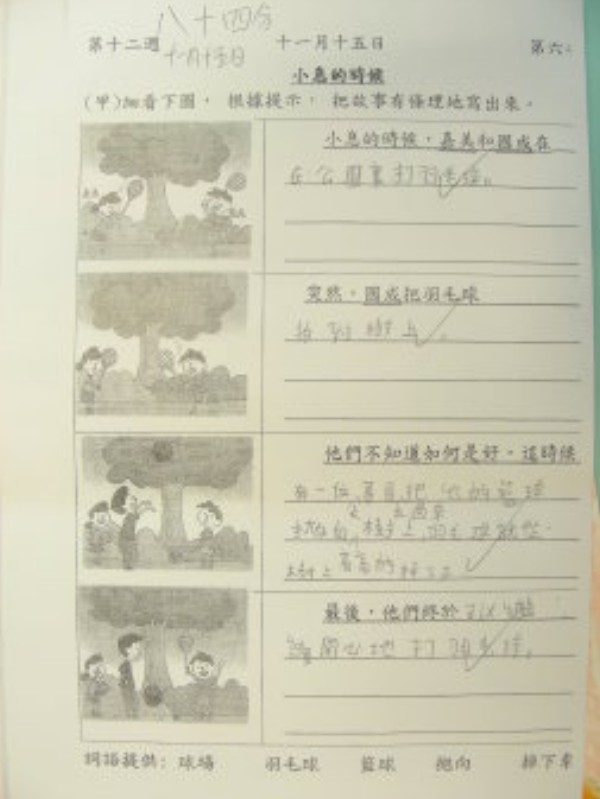 八十四分
第十二週 十一月十五日 十一月十五日 第六
小息的時候
(甲)細看下圖，根據提示，把故事有條理地寫出來。
小息的時候，嘉美和國成在
在公園裏打羽毛球。
突然，國成把羽毛球
拍到樹上。
他們不知道如何是好。這時候
有一位
他的籃球
樹上
最後，他們終於可以繼
續開心地打羽毛球。
詞語提供: 球場 羽毛球 籃球 拋向 掉下來